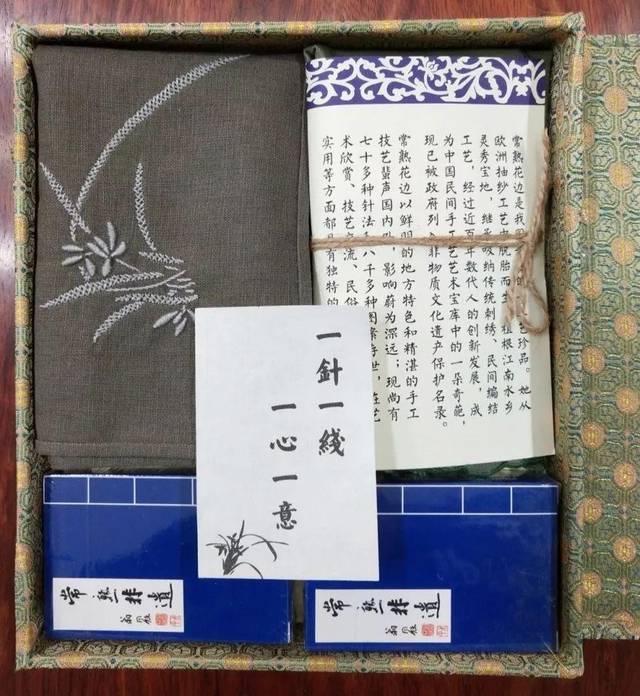 常熟花边是我
艺珍品。她从
欧洲抽纱工艺中脱胎而生,植根江南水乡
灵秀宝地,继承吸纳传统刺绣、民间编结
工艺,经过近百年数代人的创新发展,成
为中国民间手工艺艺术宝库中的一朵奇葩,
现已被政府列入非物质文化遗产保护名录。
常熟花边以鲜明的地方特色和精湛的手工
技艺蜚声国内外,影响蔚为深远;现尚有
七十多种针法和八千多种图案存世,在艺
术欣赏、技艺交流、民俗
实用等方面都具有独特的
一針一綫
一心一意
常熟非遺
常熟非遺